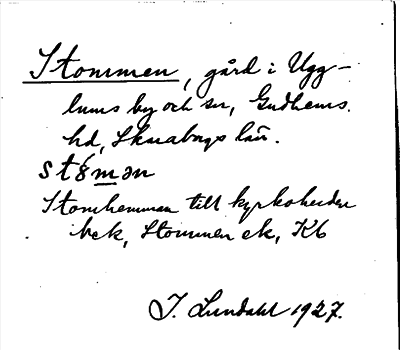 Stommen, gård i Ugg-
lums by och sn, Gudhems
hd, Skaraborgs län.
stömən
Stomhemman till kyrkoherde
, Stommen ek, Kb
J. Lundahl 1927.